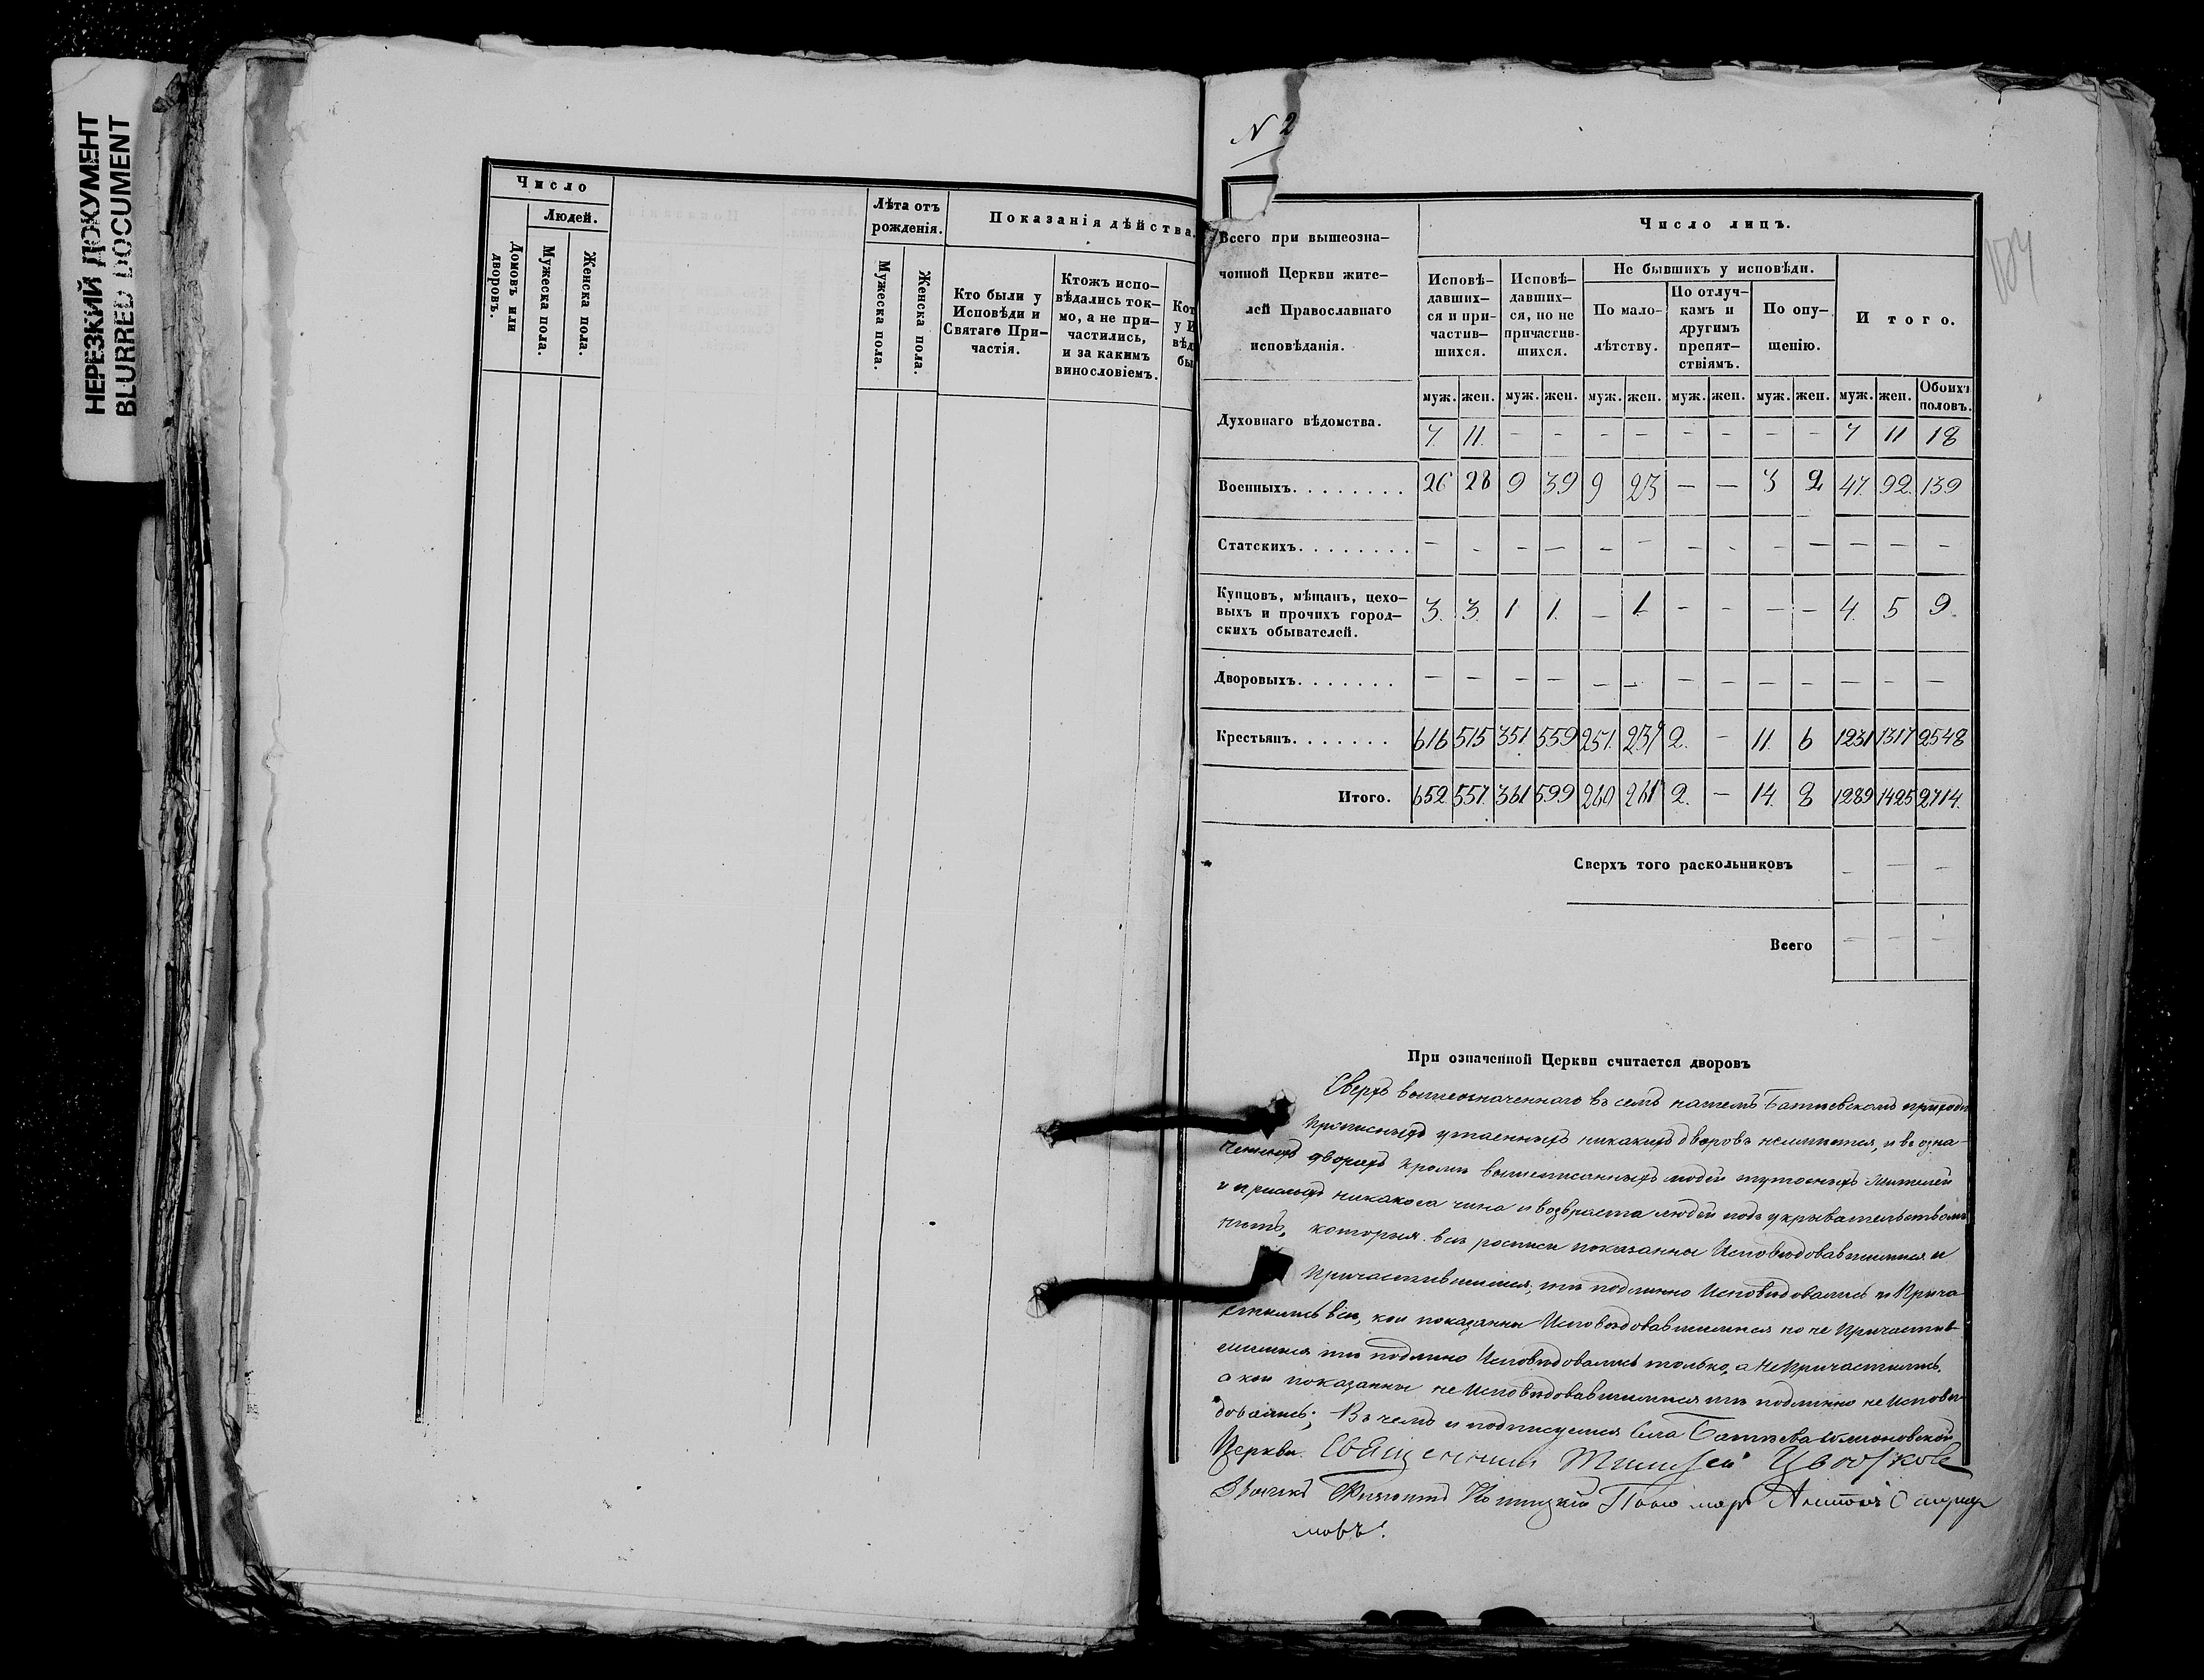 НЕРЕЗКИЙ ДОКУМЕНТ
BLURRED DOCUMENT
Число
Людей.
Домовъ или дворовъ.
Мужеска пола.
Женска пола.
Лѣта отъ
рожденія.
Мужеска пола.
Женска пола.
Показанія дѣйства.
Кто были у
Исповѣди и
Святаго При-
частія.
Ктожъ испо-
вѣдались ток-
мо, а не при-
частились,
и за какимъ
винословіемъ.
Кот
у И
вѣд
бы
N 2
104
Всего при вышеозна-
ченной Церкви жите-
лей Православнаго
исповѣданія.
Число лицъ.
Исповѣ-
давших-
ся и при-
частив-
шихся.
Исповѣ-
давших-
ся, но не
причастив-
шихся.
Не бывшихъ у исповѣди.
По мало-
лѣтству.
По отлуч-
камъ и
другимъ
препят-
ствіямъ.
По опу-
щенію.
Итого.
муж. жен. муж. жен. муж. жен. муж. жен. муж. жен. муж. жен. Обоихъ половъ.
Духовнаго вѣдомства. 7 11 - - - - - - - - 7 11 18
Военныхъ. . . . . . . . 26 28 9 39 9 23 - - 3 2 47 92 139
Статскихъ. . . . . . . . - - - - - - - - - - - - -
Купцовъ, мѣщанъ, цехо-
выхъ и прочихъ город-
скихъ обывателей. 3. 3. 1 1. - 1 - - - - 4. 5 9
Дворовыхъ. . . . . . . - - - - - - - - - - - - -
Крестьянъ. . . . . . . 616 515 351 559 251 237 2. - 11. 6 1231 1317 2548
Итого. 652 557 361 599 260 261 2. - 14. 8 1289 1425 2714.
Сверхъ того раскольниковъ - - -
Всего - - -
При означенной Церкви считается дворовъ
Сверхъ вышеозначеннаго въ семъ нашемъ приходѣ
прописныхъ утаенныхъ никакихъ дворовъ неимѣется, и въ озна-
ченныхъ дворахъ кромѣ вышеписанныхъ людей тутошныхъ жителей
и пришлыхъ никакого чина и возвраста людей подъ укрывательствомъ
нѣтъ, которыя в сей росписи показанны Исповѣдовавшимися и
Причастившимися, тѣ подлинно Исповѣдовались и Прича-
стились все, кои показанны Исповѣдовавшимися но не Причастив-
шимися тѣ подлино Исповѣдовались только, а не причастились.
а кои показанны не Исповѣдовавшимися тѣ подлинно не Исповѣ-
довались; Въ чемъ и подписуемся Села
Церкви Священникъ Тимофей Цвѣтковъ
Дьячекъ Филиппъ Пономарь Антонъ
мовъ.